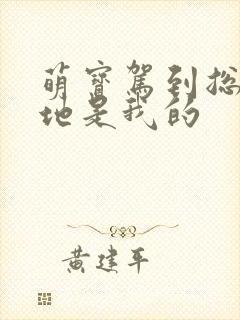 萌寶駕到總
地是我的
黃建平